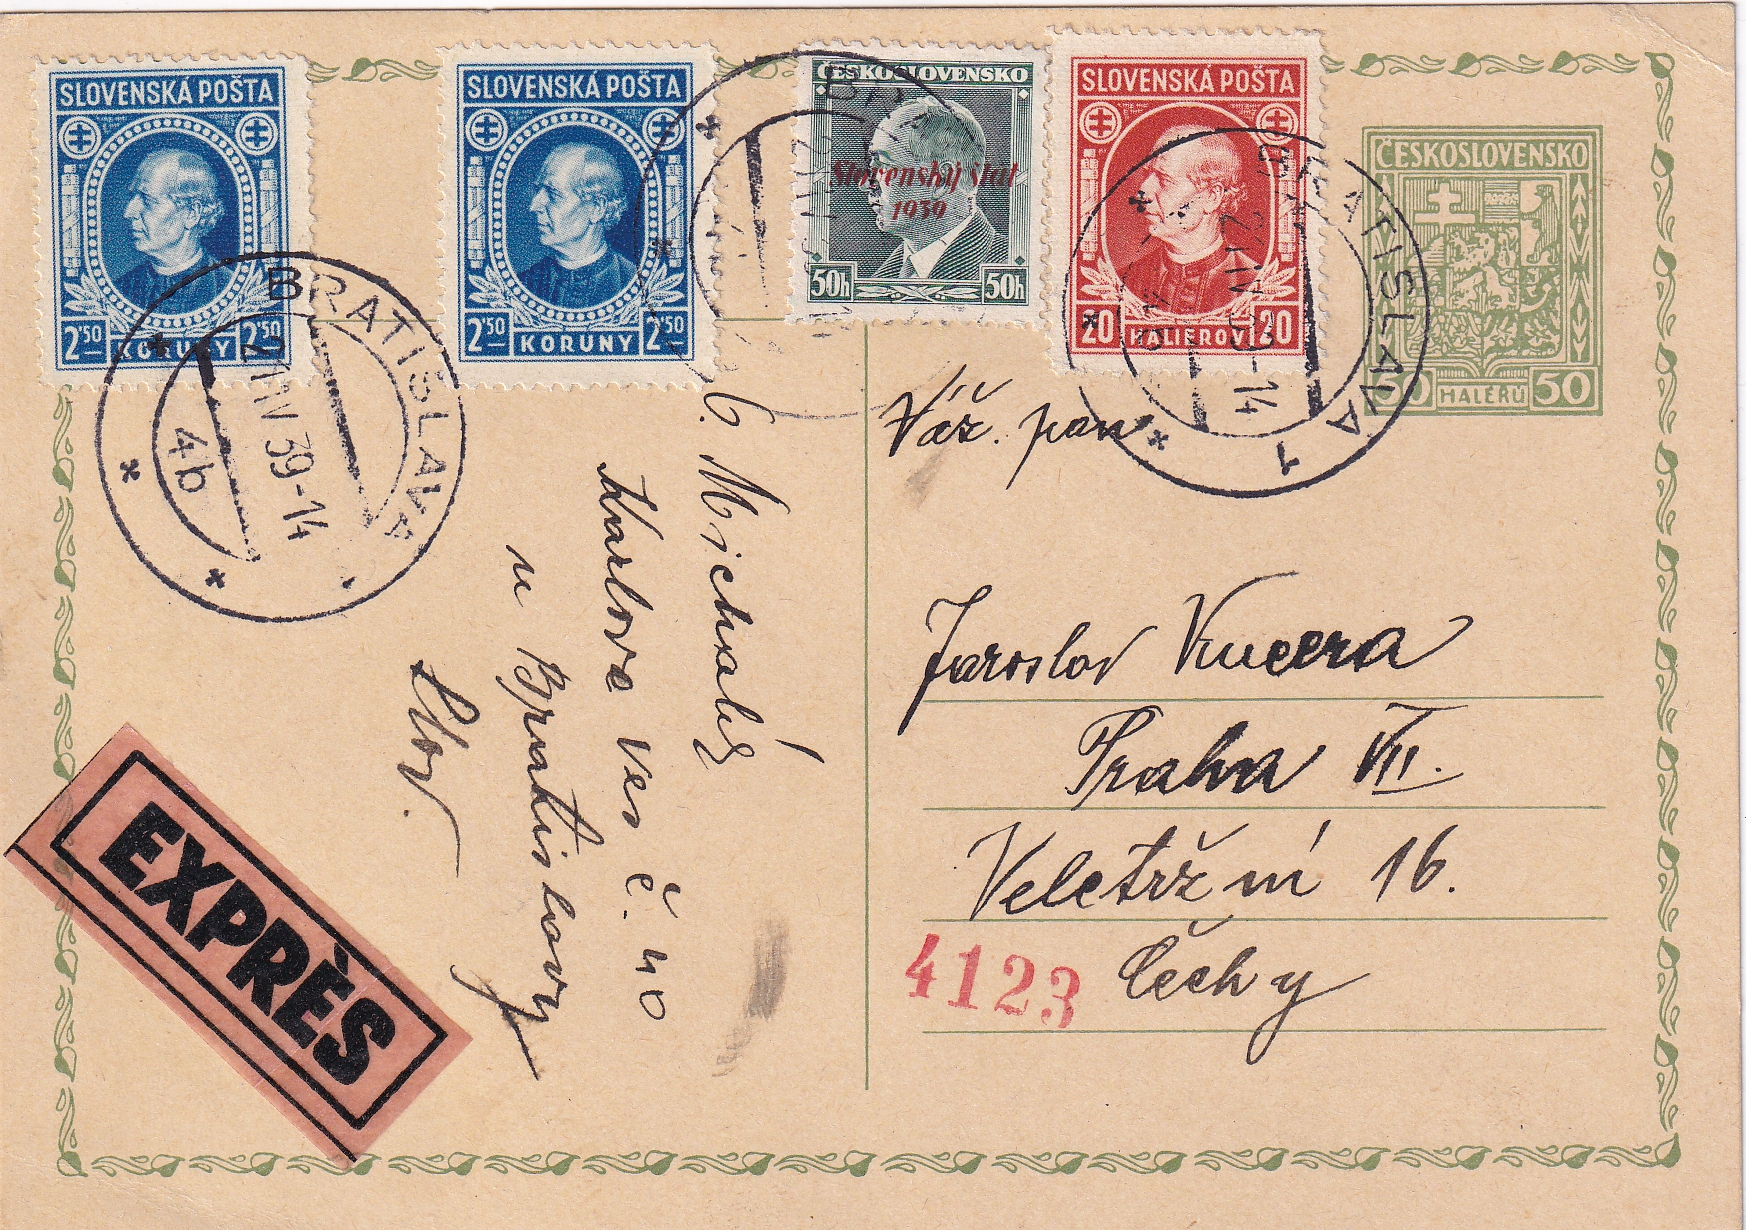 SLOVENSKÁ POŠTA
2'50 KORUNY 2'50
SLOVENSKÁ POŠTA
2'50 KORUNY 2'50
ČESKOSLOVENSKO
Slovenský štát
1939
50h 50h
SLOVENSKÁ POŠTA
20 HALIEROV 20
ČESKOSLOVENSKO
50 HALÉRŮ 50
BRATISLAVA
21 IV 39-14
4b
BRATISLAVA 1
-14
Váž. pan
Jaroslav Kucera
Praha VII.
Veletržní 16.
Čechy
4123
Karlova Ves č. 40
u Bratislavy
Slov.
EXPRÈS